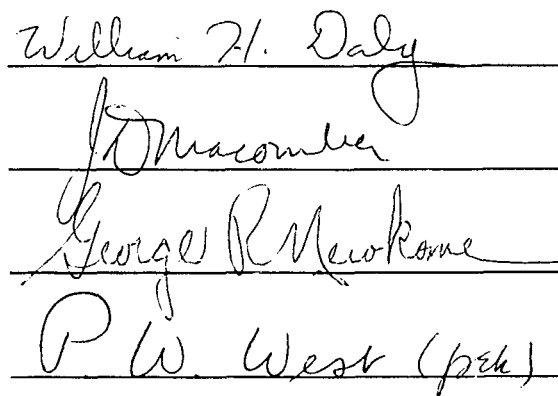 William H. Daly
J D Macomber
George R Newkome
P. W. West (pek)